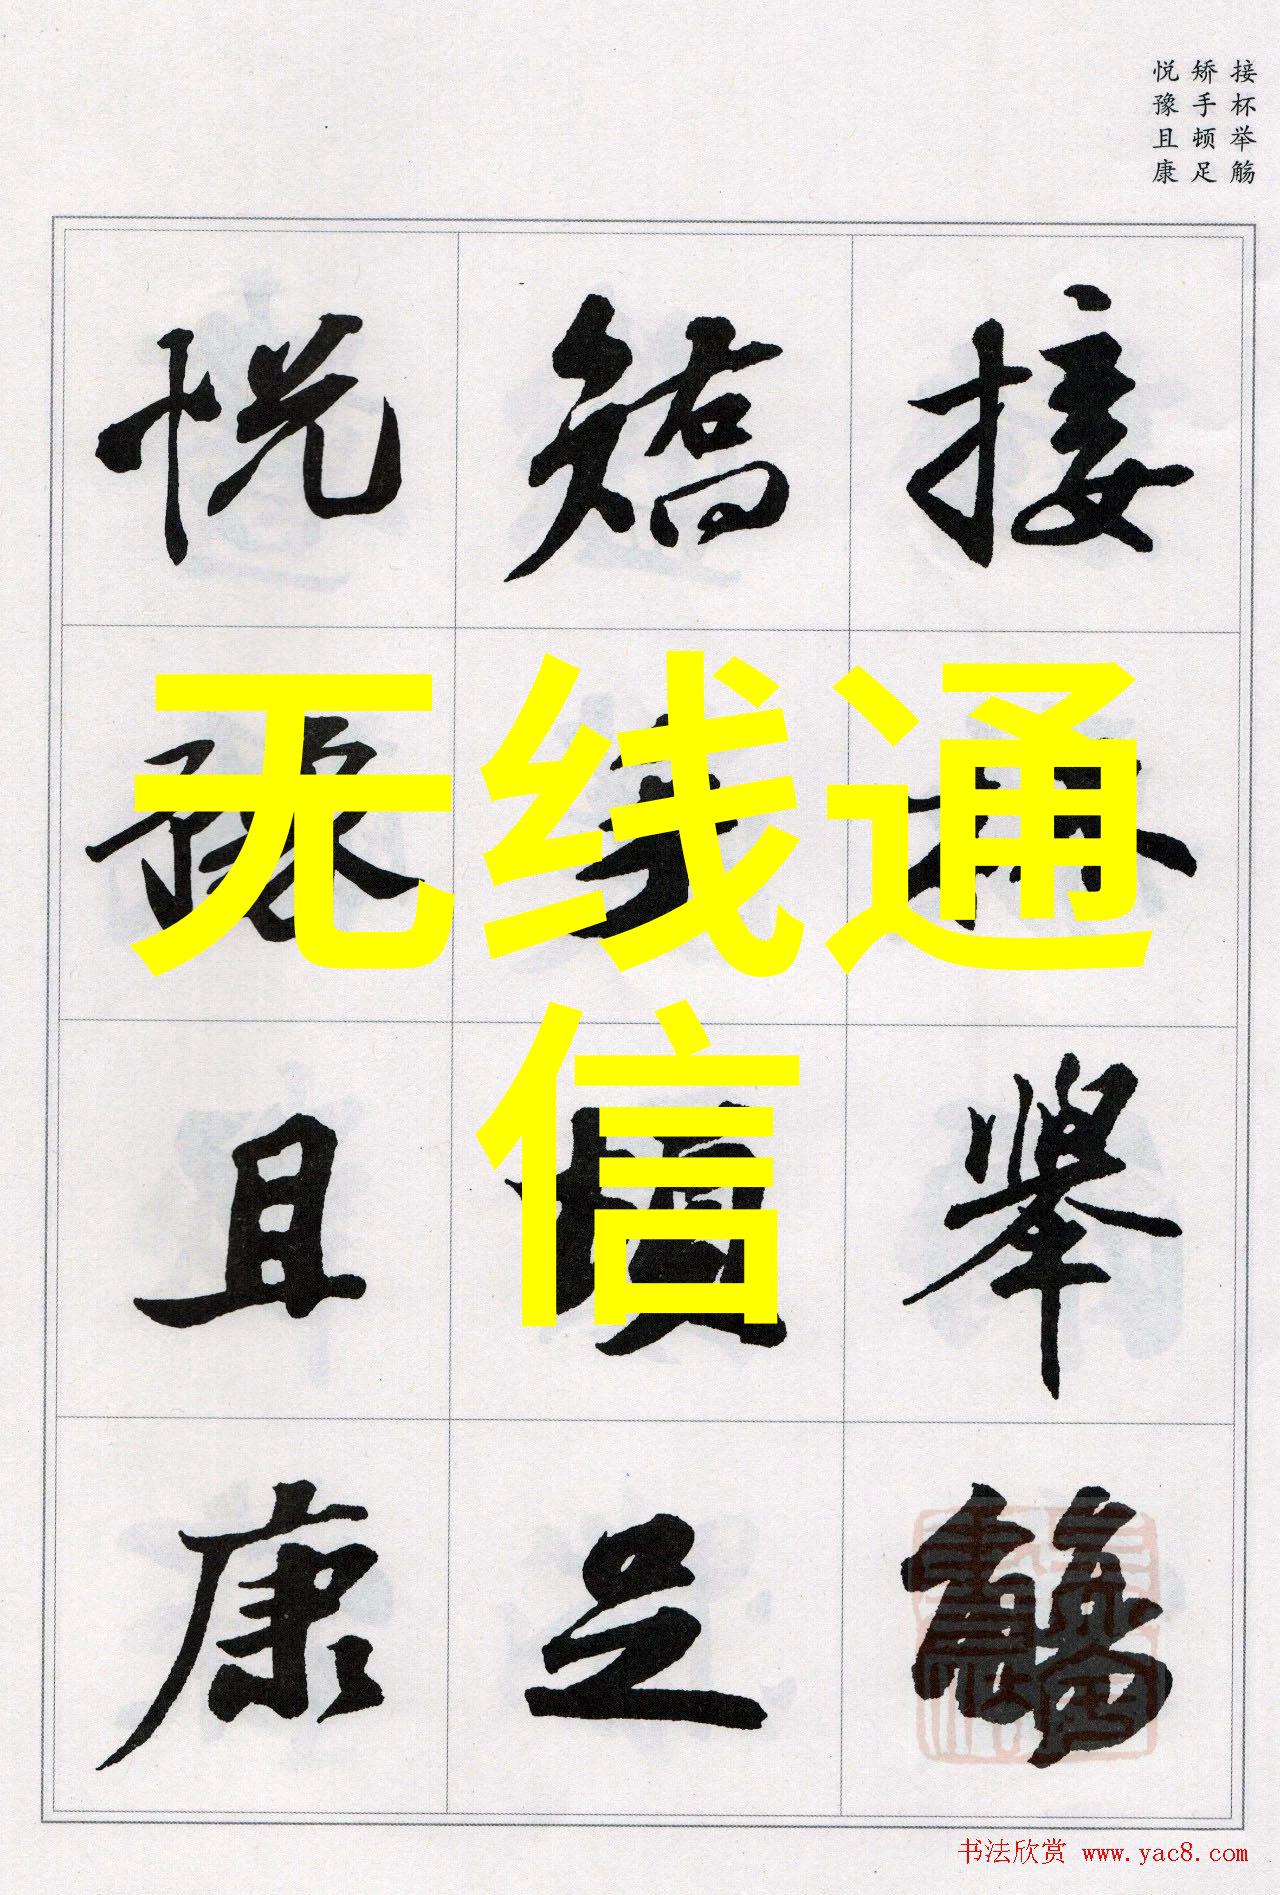 接杯举觞
矫手顿足
悦豫且康
接杯舉觴
矯手頓足
悦豫且康
无线通
信
书法欣赏 www.yac8.com